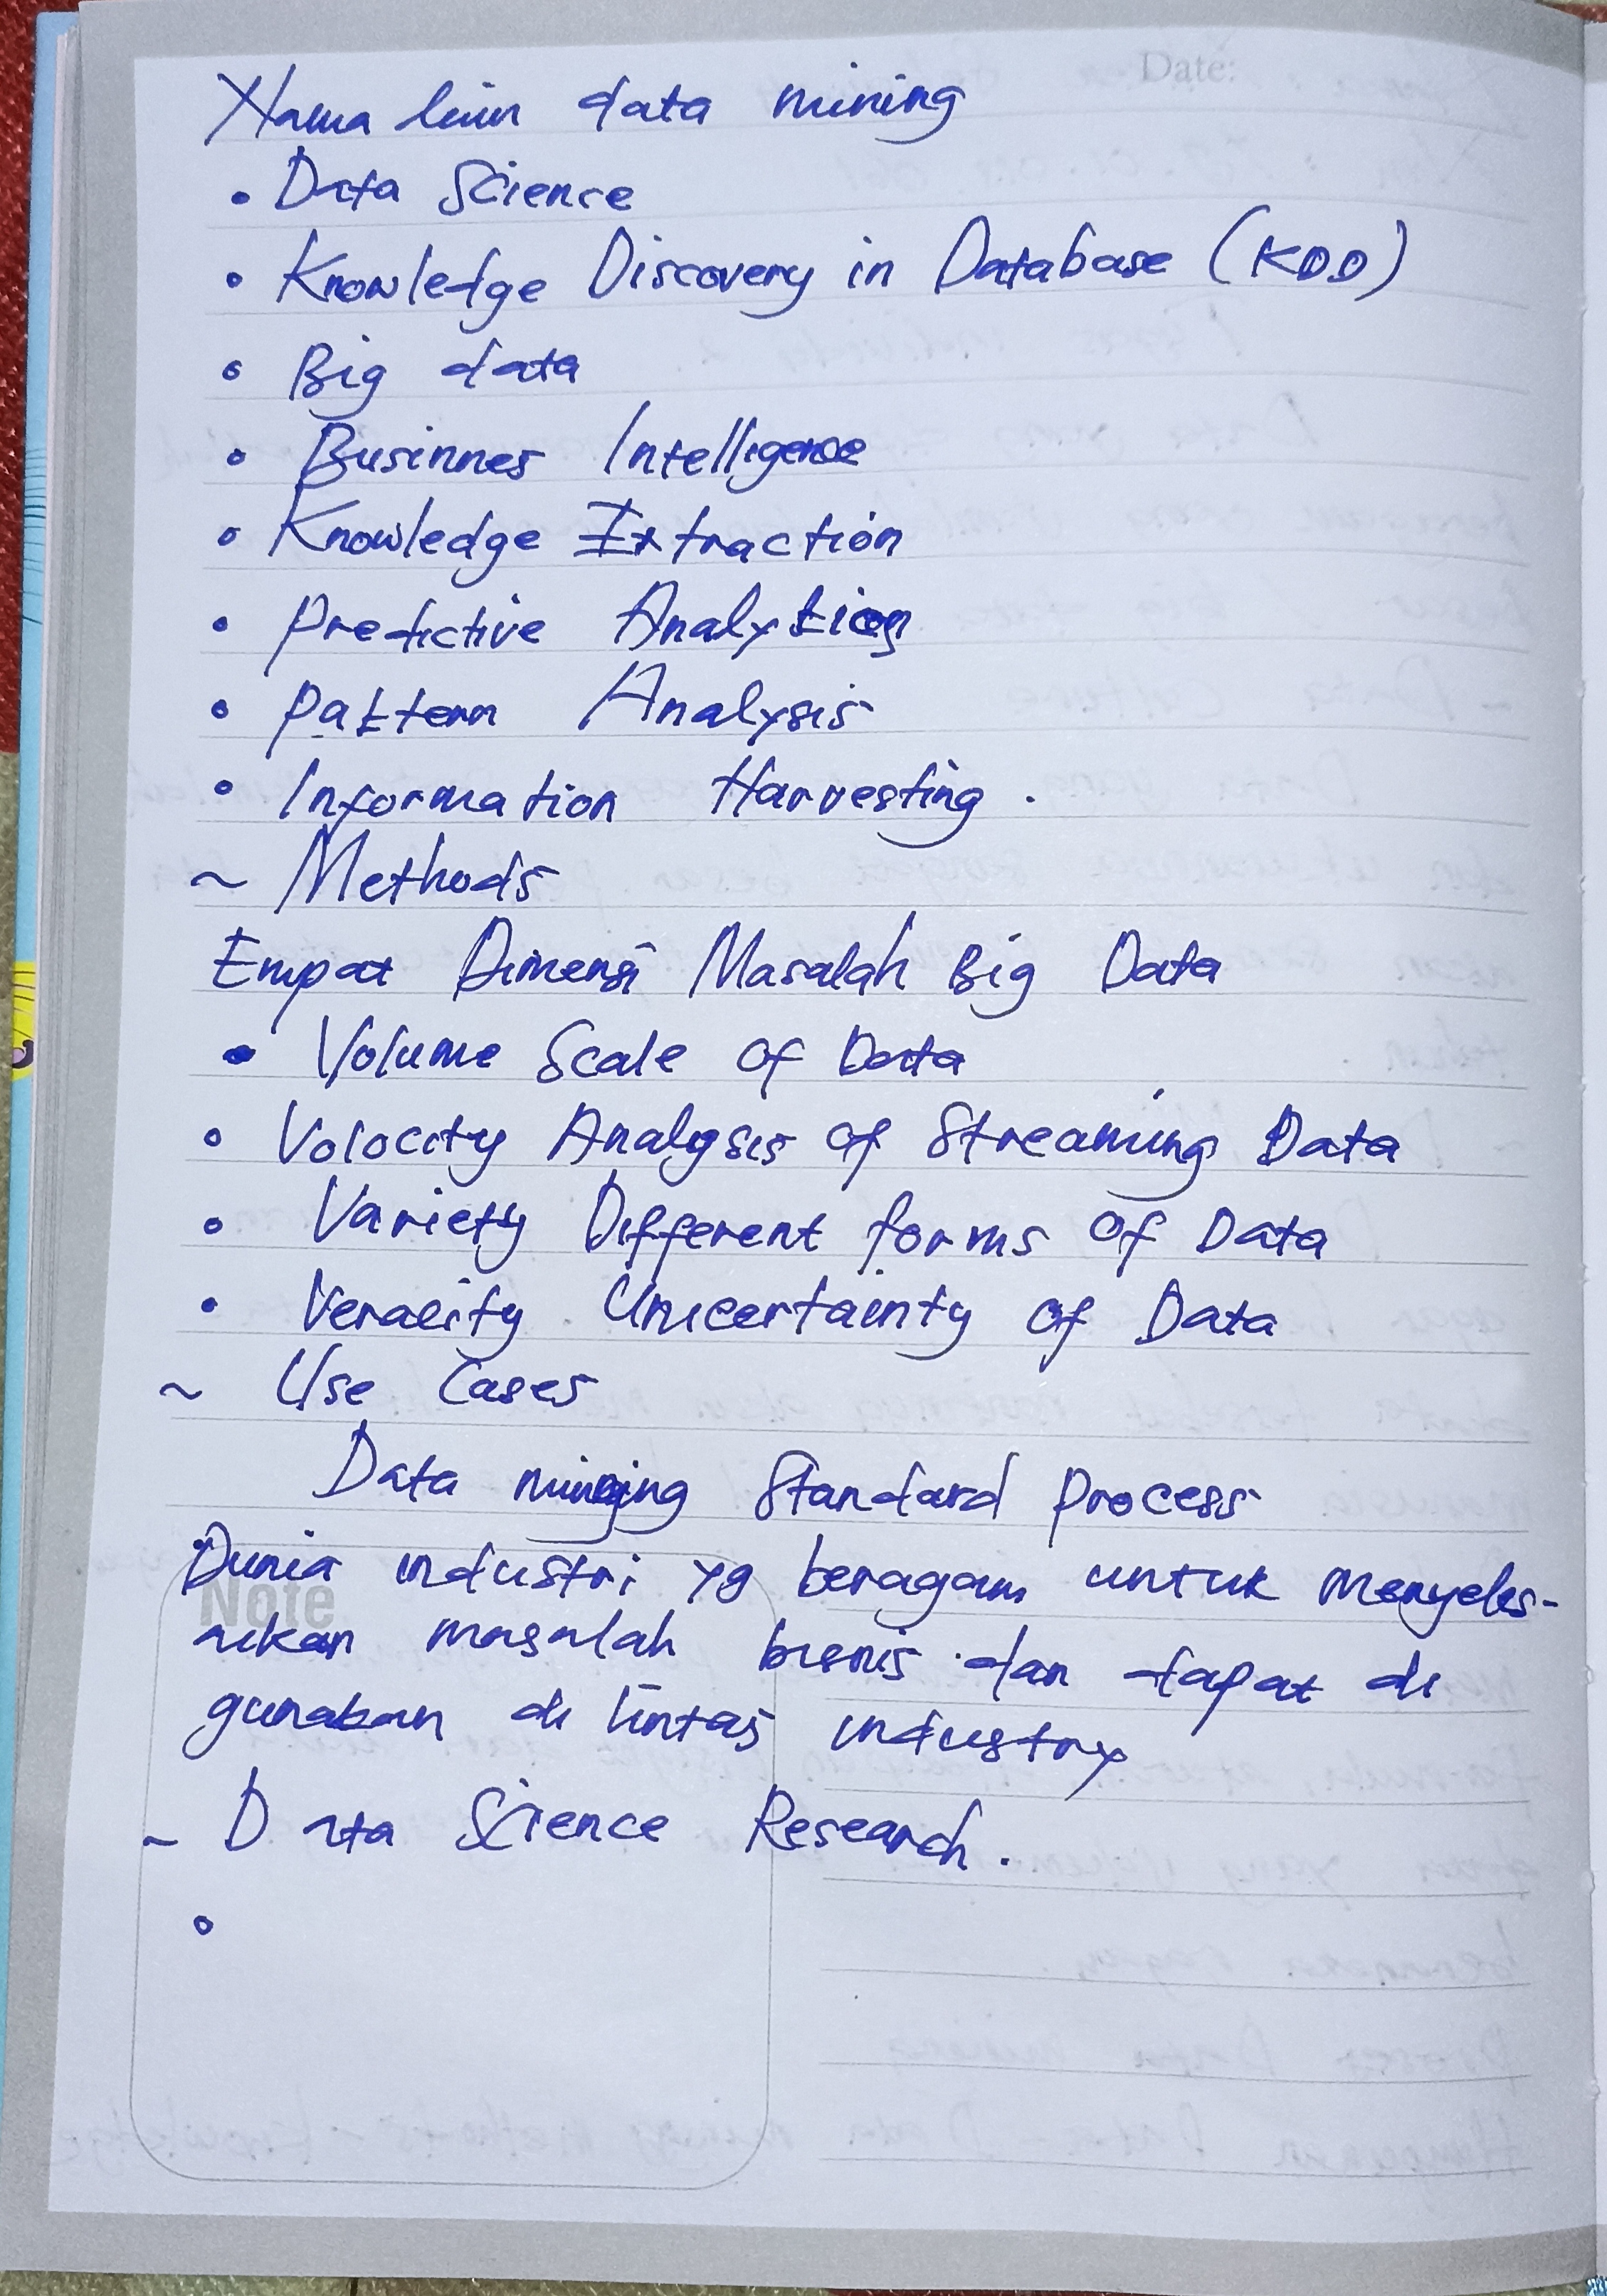 Date:
Nama lain data mining
• Data Science
• Knowledge Discovery in Database (KDD)
• Big data
• Businnes Intelligence
• Knowledge Extraction
• Predictive Analytics
• Pattern Analysis
• Information Harvesting.
~ Methods
Empat Dimensi Masalah Big Data
• Volume Scale of Data
• Volocity Analysis of Streaming Data
• Variety Different forms of Data
• Veracity Uncertainty of Data
~ Use Cases
Data mining Standard Process
Dunia industri yg beragam untuk menyeles-
Note
aikan masalah bisnis dan dapat di
gunakan di lintas industry
~ Data Science Research.
•